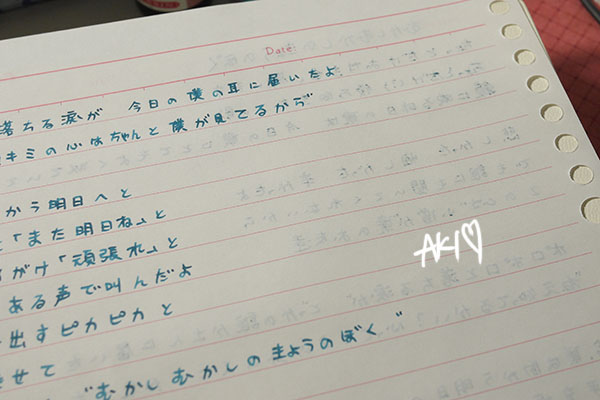 Date
落ちる涙が 今日の僕の耳に届いたよ
キミの心はちゃんと僕が見てるから"
から明日へと
「また明日ね」と
がけ「頑張れ」と
ある声で叫んだよ
出すピカピカと
せて
"むかしむかしのきょうのぼく"
AKI♡